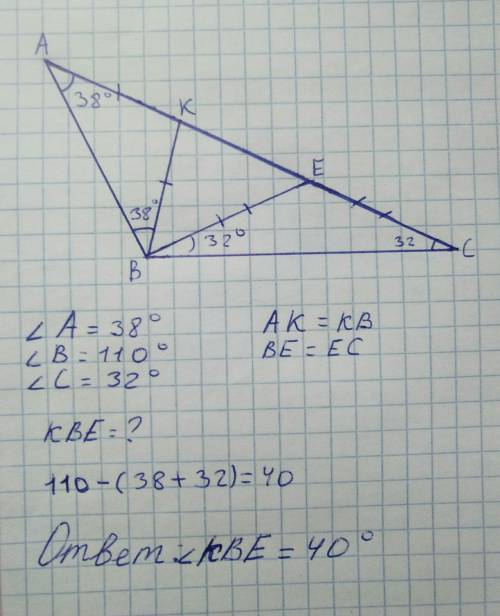 A
38°
K
E
38°
32°
32
B
C
∠ A = 38°
∠ B = 110°
∠ C = 32°
AK = KB
BE = EC
KBE = ?
110 - (38 + 32) = 40
Ответ: ∠KBE = 40°